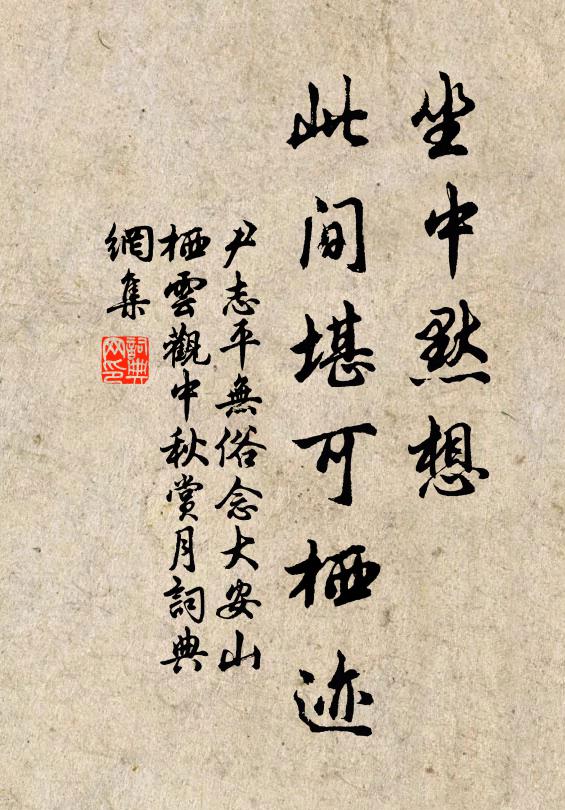 坐中默想
此间堪可栖迹
尹志平無俗念大安山
栖雲觀中秋賞月詞典
網集
詞典网印